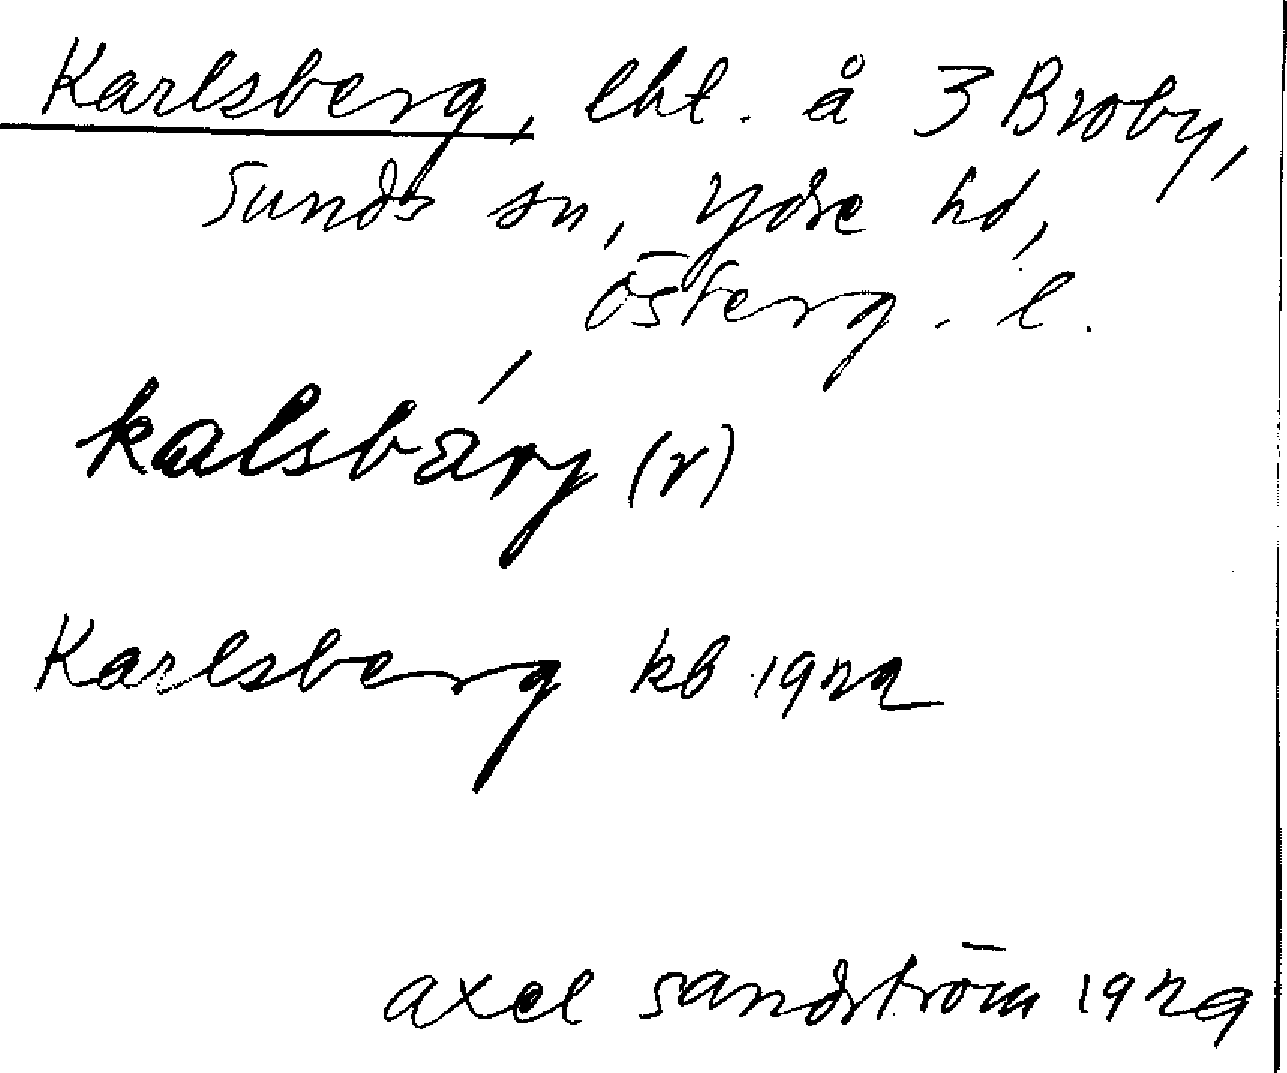 Karlsberg, lht. å 3 Broby,
Sunds sn, Ydre hd,
Österg. l.
kalsbárj (r)
Karlsberg kb 1929
axel sandström 1929